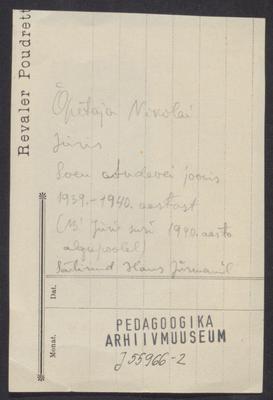 Revaler Poudrett
Õpetaja Nikolai
Jüris
Loen
joonis
1939.-1940. aastast
(NB! Jüri suri 1940. aasta
algupoolel)
Säilinud Hans Jürmanil
Dat.
Monat.
PEDAGOOGIKA
ARHIIVMUUSEUM
J55966-2